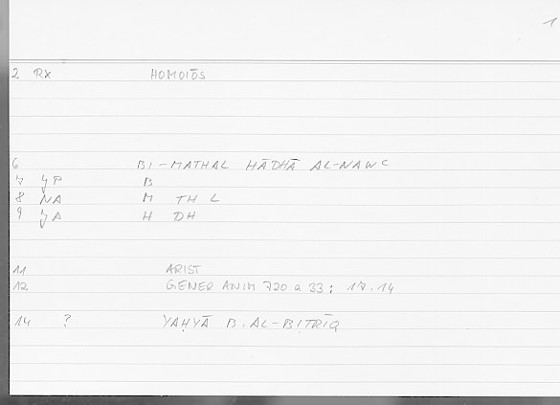 1
2 RX HOMOIŌS
6 BI-MATHAL HĀDHĀ AL-NAWʿ
7 JP B
8 NA M TH L
9 JA H DH
11 ARIST
12 GENER ANIM 720 a 33 : 17.14
14 ? YAḤYĀ B. AL-BIṬRĪQ